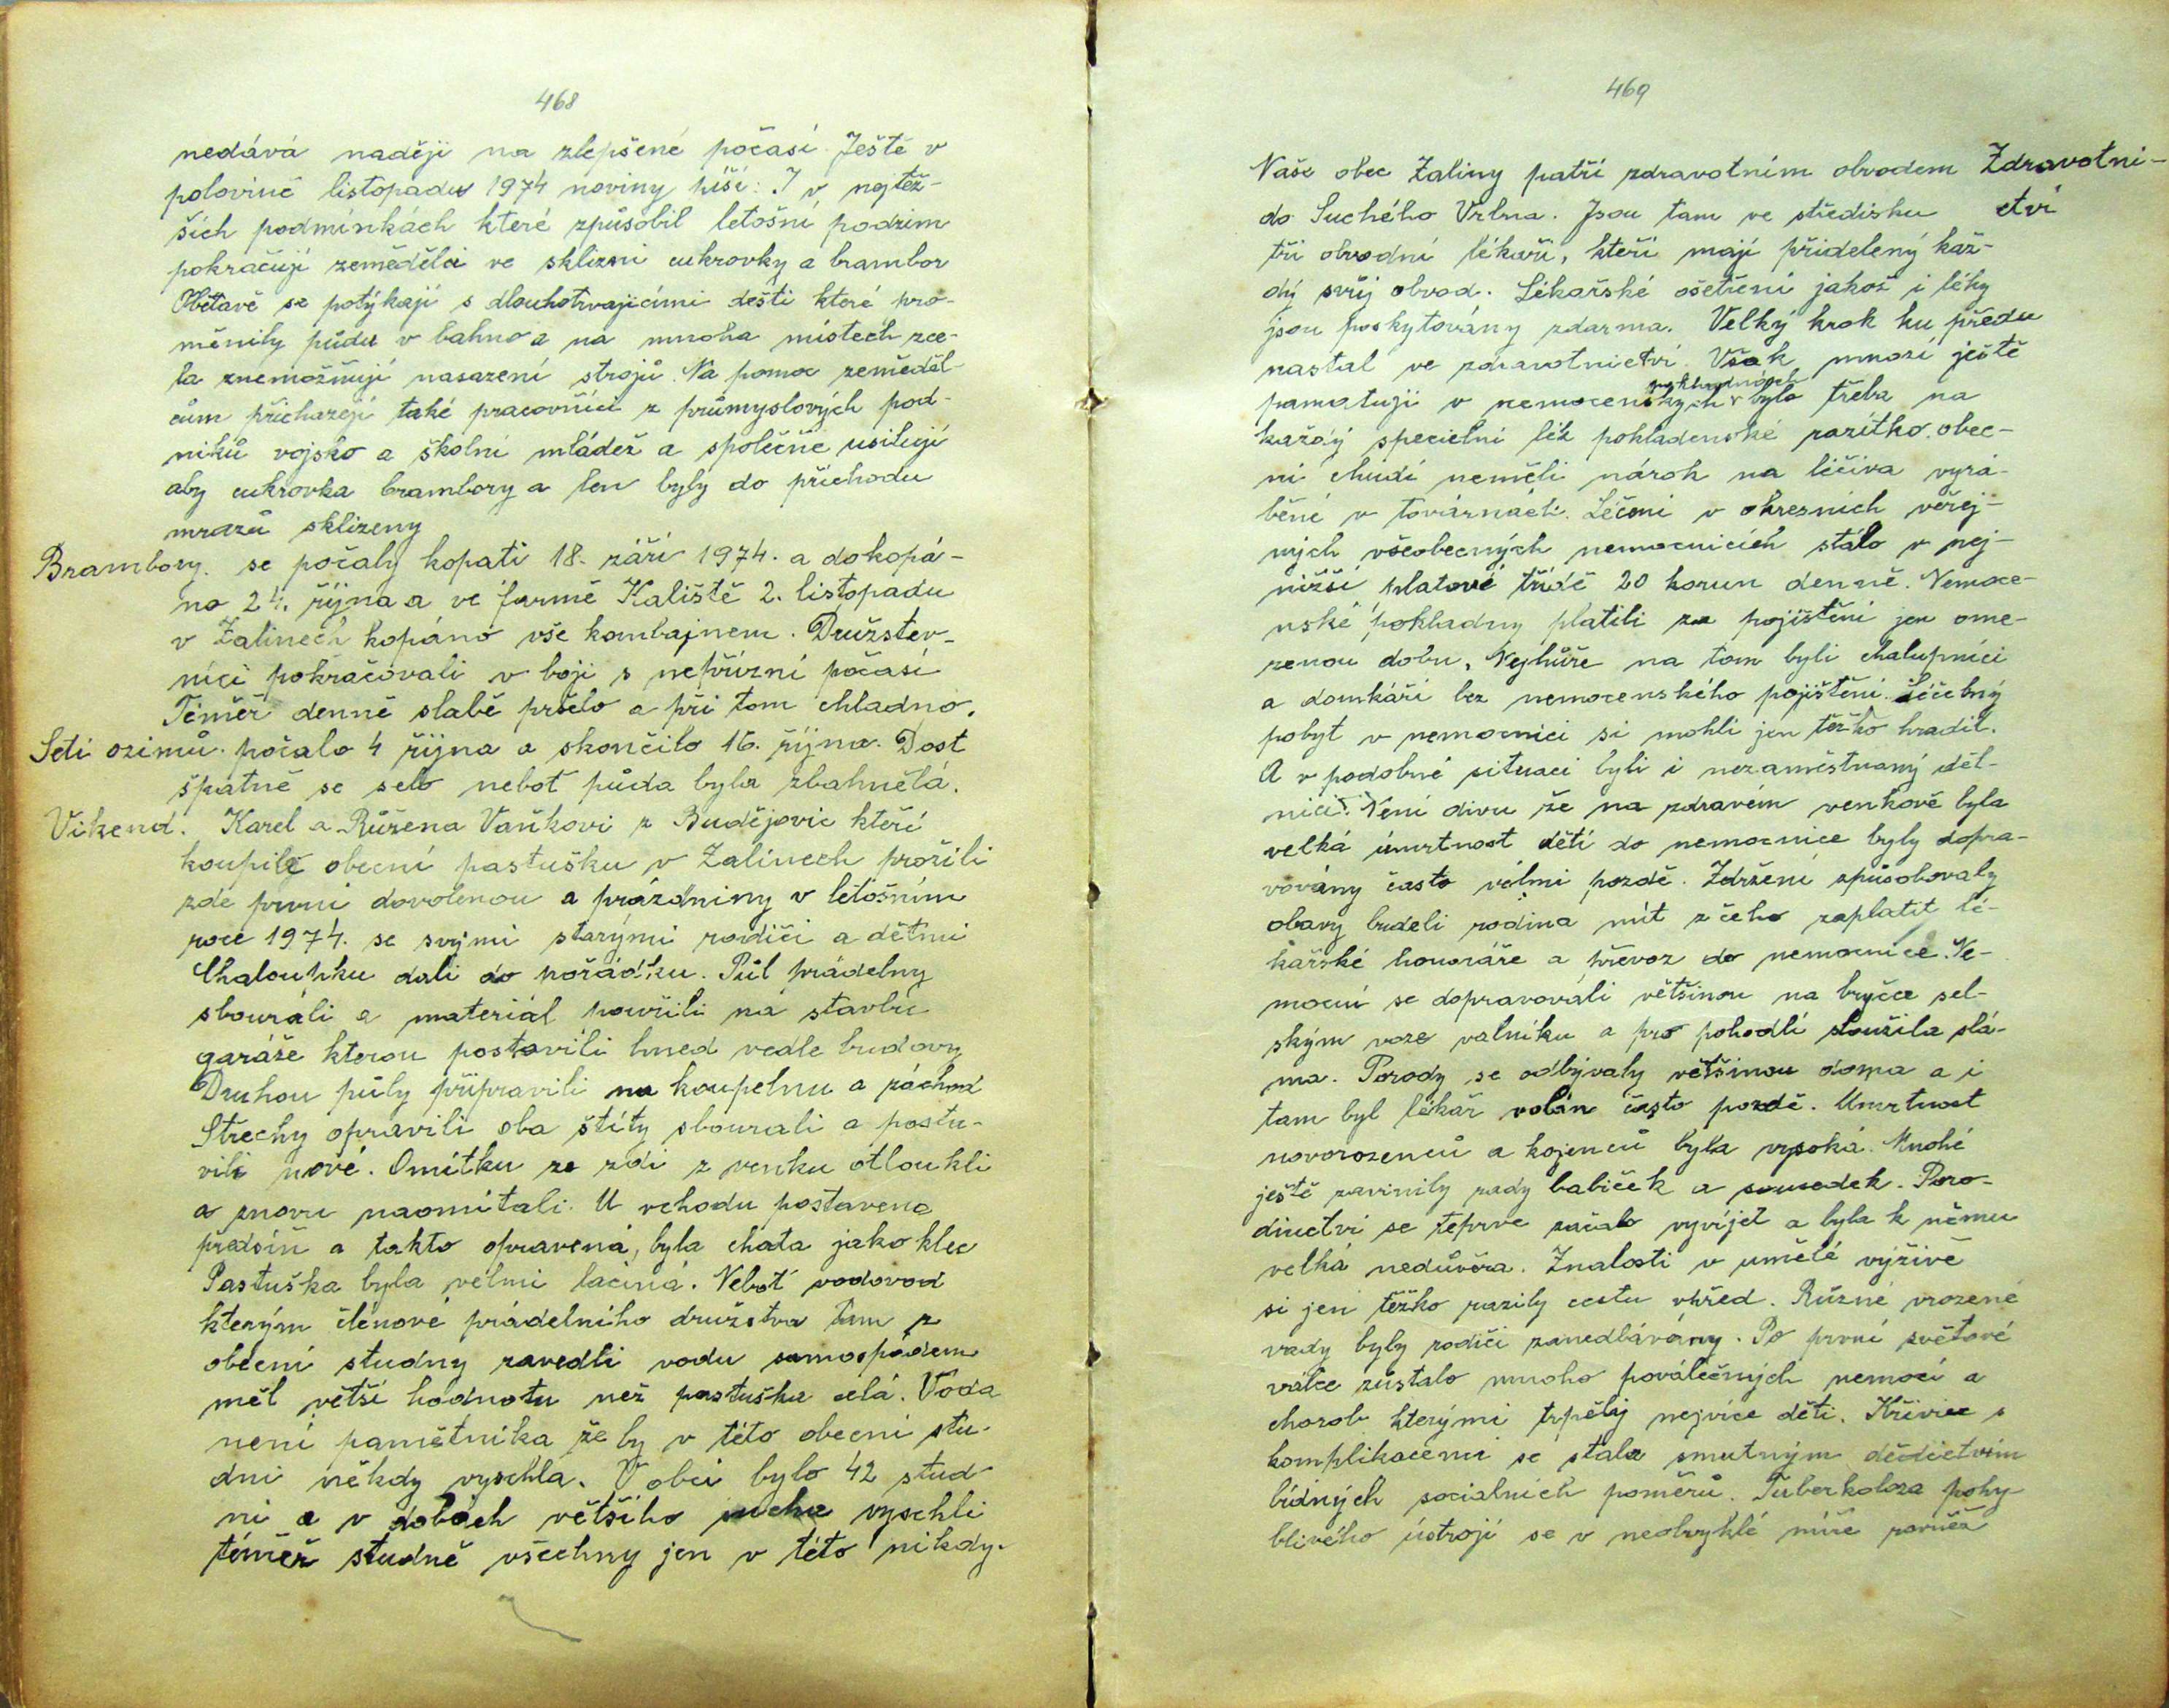 468
nedává naději na zlepšené počasí. Ještě v
polovině listopadu 1974 noviny píší: I v nejtěž-
ších podmínkách které způsobil letošní podzim
pokračují zemědělci ve sklizni cukrovky a brambor
Obětavě se potýkají s dlouhotrvajícími dešti které pro-
měnily půdu v bahno a na mnoha místech zce-
la znemožňují nasazení strojů. Na pomoc zeměděl-
cům přicházejí také pracovníci z průmyslových pod-
niků vojsko a školní mládež a společně usilují
aby cukrovka brambory a len byly do příchodu
mrazů sklizeny
Brambory. se počaly kopati 18. září 1974. a dokopá-
no 24. října a ve farmě Kaliště 2. listopadu
v Zalinech kopáno vše kombajnem. Družstev-
níci pokračovali v boji s nepřízní počasí
Téměř denně slabě pršelo a při tom chladno.
Setí ozimů. počalo 4 října a skončilo 16. října. Dost
špatně se selo neboť půda byla zbahnělá.
Víkend. Karel a Růžena Vaňkovi z Budějovic kteří
koupily obecní pastušku v Zalinech prožili
zde první dovolenou a prázdniny v letošním
roce 1974. se svými starými rodiči a dětmi
Chaloupku dali do pořádku. Půl prádelny
sbourali a materiál použili na stavbu
garáže kterou postavili hned vedle budovy
Druhou půly připravili na koupelnu a záchod
Střechy opravili oba štíty sbourali a posta-
vili nové. Omítku ze zdi z venku otloukli
a znovu naomítali. U vchodu postavena
předsíň a takto opravená, byla chata jako klec
Pastuška byla velmi laciná. Neboť vodovod
kterým členové prádelního družstva tam z
obecní studny zavedli vodu samospádem
měl větší hodnotu než pastuška celá. Voda
není pamětníka že by v této obecní stu-
dni někdy vyschla. V obci bylo 42 stud-
ní a v dobách většího sucha vyschli
téměř studně všechny jen v této nikdy.
469
Naše obec Zaliny patří zdravotním obvodem Zdravotni-
do Suchého Vrbna. Jsou tam ve středisku ctví
tři obvodní lékaři, kteří mají přidelený kaž-
dý svůj obvod. Lékařské ošetření jakož i léky
jsou poskytovány zdarma. Velký krok ku předu
nastal ve zdravotnictví. Však mnozí ještě
pokladnách
pamatují v nemocenských bylo třeba na
každý specielní lék pokladenské razítko. obec-
ní chudí neměli nárok na léčiva vyrá-
běné v továrnách. Léčení v okresních veřej-
ných všeobecných nemocnicích stálo v nej-
nižší platové třídě 20 korun denně. Nemoce-
nské pokladny platili za pojištění jen ome-
zenou dobu. Nejhůře na tom byli chalupníci
a domkáři bez nemocenského pojištění. Léčebný
pobyt v nemocnici si mohli jen těžko hradit.
A v podobné situaci byli i nezaměstnaný děl-
níci. Není divu že na zdravém venkově byla
velká úmrtnost dětí do nemocnice byly dopra-
vovány často velmi pozdě. Zdržení způsobovaly
obavy budeli rodina mít z čeho zaplatit lé-
kařské honoráře a převoz do nemocnice. Ne-
mocní se dopravovali většinou na bryčce sel-
ským voze valníku a pro pohodlí sloužila slá-
ma. Porody se odbývaly většinou doma a i
tam byl lékař volán často pozdě. Umrtnost
novorozenců a kojenců byla vysoká. Mnohé
ještě zavinily rady babiček a sousedek. Poro-
dnictví se teprve začalo vyvíjet a byla k němu
velká nedůvěra. Znalosti v umělé výživě
si jen těžko razily cestu vpřed. Různé vrozené
vady byly rodiči zanedbávány. Po první světové
válce zůstalo mnoho poválečných nemocí a
chorob kterými trpěly nejvíce děti. Křivice s
komplikacemi se stala smutným dědictvím
bídných socialních poměrů. Tuberkoloza pohy-
blivého ústrojí se v neobvyklé míře rovněž